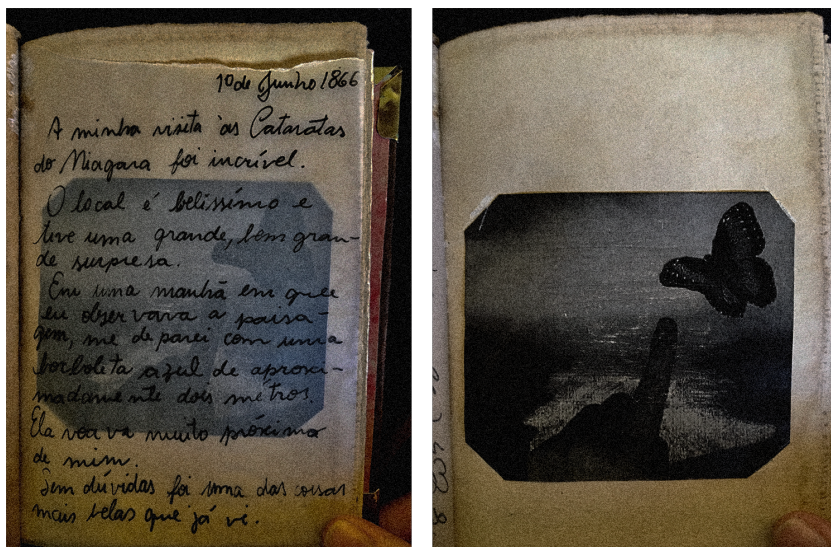 1º de Junho 1866
A minha visita às Cataratas
do Niagara foi incrível.
O local é belíssimo e
tive uma grande, bem gran-
de surpresa.
Em uma manhã em que
eu observava a paisa-
gem, me deparei com uma
borboleta azul de aproxi-
madamente dois metros.
Ela voava muito próximo
de mim.
Sem dúvidas foi uma das coisas
mais belas que já vi.